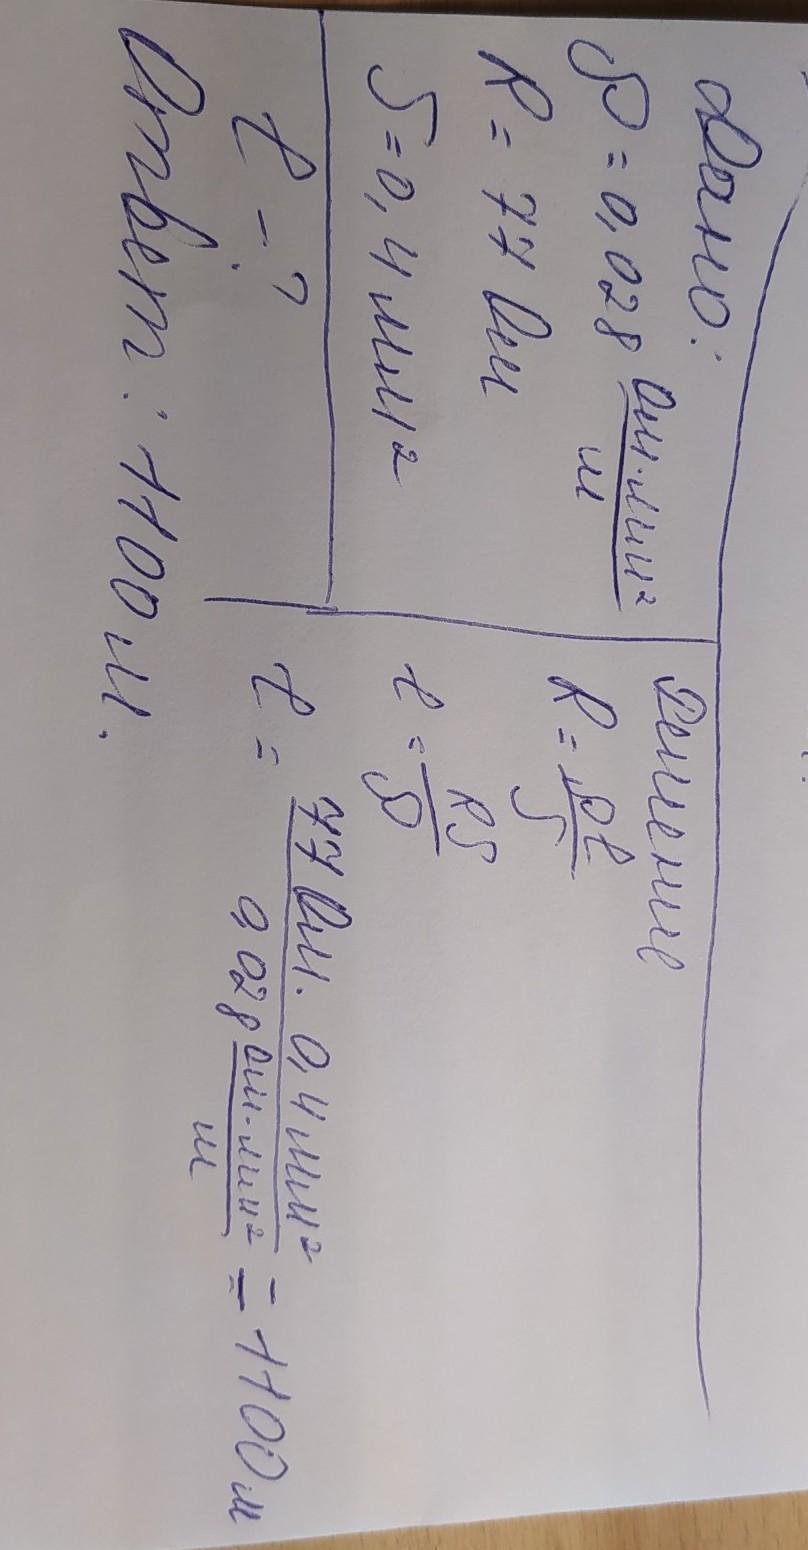 Дано:
ρ = 0,028 Ом·мм²/м
R = 77 Ом
S = 0,4 мм²
ℓ - ?
Решение
R = ρℓ/S
ℓ = RS/ρ
ℓ = 77 Ом · 0,4 мм² / 0,028 Ом·мм²/м = 1100 м
Ответ: 1100 м.